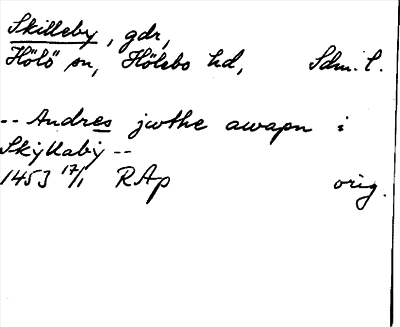 Skilleby, gdr,
Hölö sn, Hölebo hd, Sdm. l.
-- Andres jwthe awapn i
Skÿllabÿ --
1453 17/1 RAp orig.